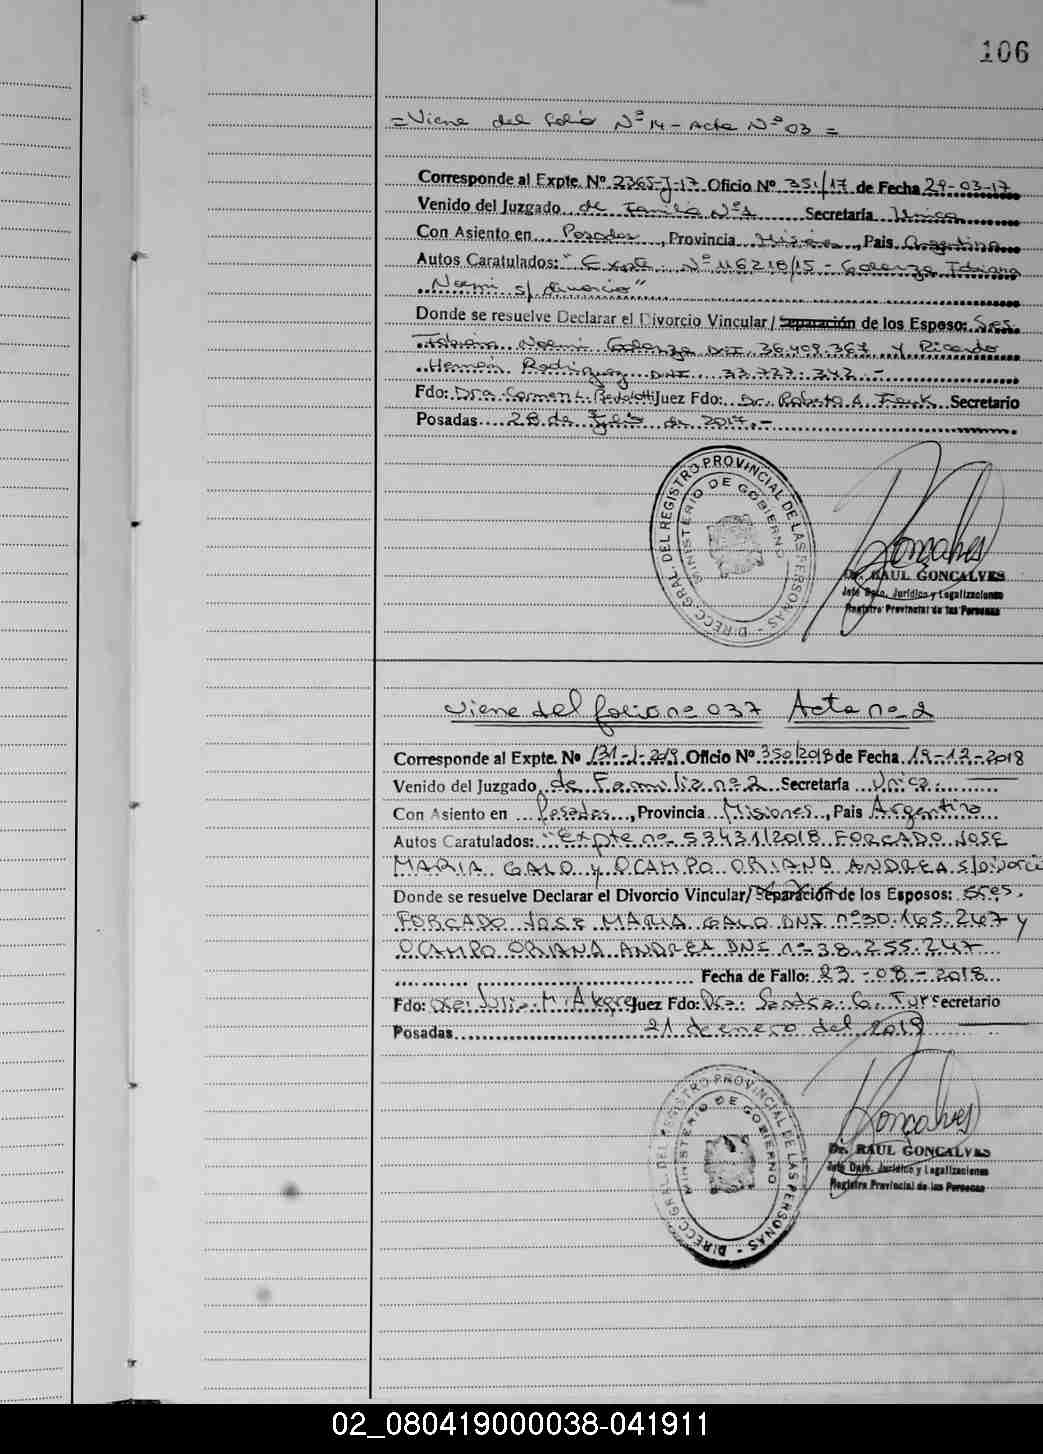 106
= Viene del folio Nº 14 - Acta Nº 03 =
Corresponde al Expte. Nº 2365-J-17 Oficio Nº 351/17 de Fecha 29-03-17
Venido del Juzgado de Familia Nº 1 Secretaría Unica
Con Asiento en Posadas, Provincia Misiones, Pais Argentina
Autos Caratulados: "Expte Nº 116218/15 - Galarza Fabiana
Noemi s/ divorcio"
Donde se resuelve Declarar el Divorcio Vincular / Separación de los Esposo: Sres.
Fabiana Noemi Galarza DNI 36.409.367 y Ricardo
Hernán Rodriguez DNI 33.377.342.-
Fdo: Dra Carmen L. Juez Fdo: Dr. Roberto A. Secretario
Posadas 28 de de 2017.-
DIRECC. GRAL. DEL REGISTRO PROVINCIAL DE LAS PERSONAS -
MINISTERIO DE GOBIERNO
Goncalves
Dr. RAUL GONCALVES
Jefe Dpto. Jurídico y Legalizaciones
Registro Provincial de las Personas
Viene del folio nº 037 Acta nº 2
Corresponde al Expte. Nº 131-J-2019 Oficio Nº 350/2018 de Fecha 19-12-2018
Venido del Juzgado de Familia nº 2 Secretaría Unica
Con Asiento en Posadas, Provincia Misiones, Pais Argentina
Autos Caratulados: "Expte nº 53431/2018 FORCADO JOSE
MARIA GALO y OCAMPO ORIANA ANDREA s/Divorci
Donde se resuelve Declarar el Divorcio Vincular/ Separación de los Esposos: Sres.
FORCADO JOSE MARIA GALO DNI nº 30.165.247 y
OCAMPO ORIANA ANDREA DNI nº 38.255.247
Fecha de Fallo: 23-08-2018
Fdo: Dra: Julia M. Alegre Juez Fdo: Dra: Sandra G. Secretario
Posadas 21 de enero del 2019
DIRECC. GRAL. DEL REGISTRO PROVINCIAL DE LAS PERSONAS -
MINISTERIO DE GOBIERNO
Goncalves
Dr. RAUL GONCALVES
Jefe Dpto. Jurídico y Legalizaciones
Registro Provincial de las Personas
02_080419000038-041911